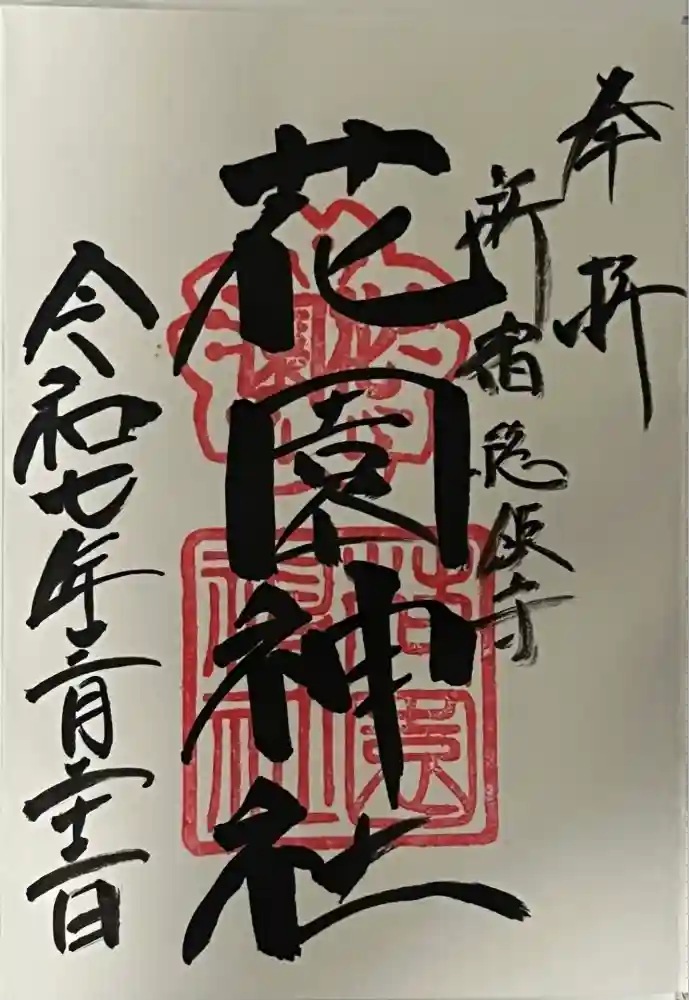 奉拝
新宿総鎮守
花園神社
令和七年三月二十一日
花園
神社